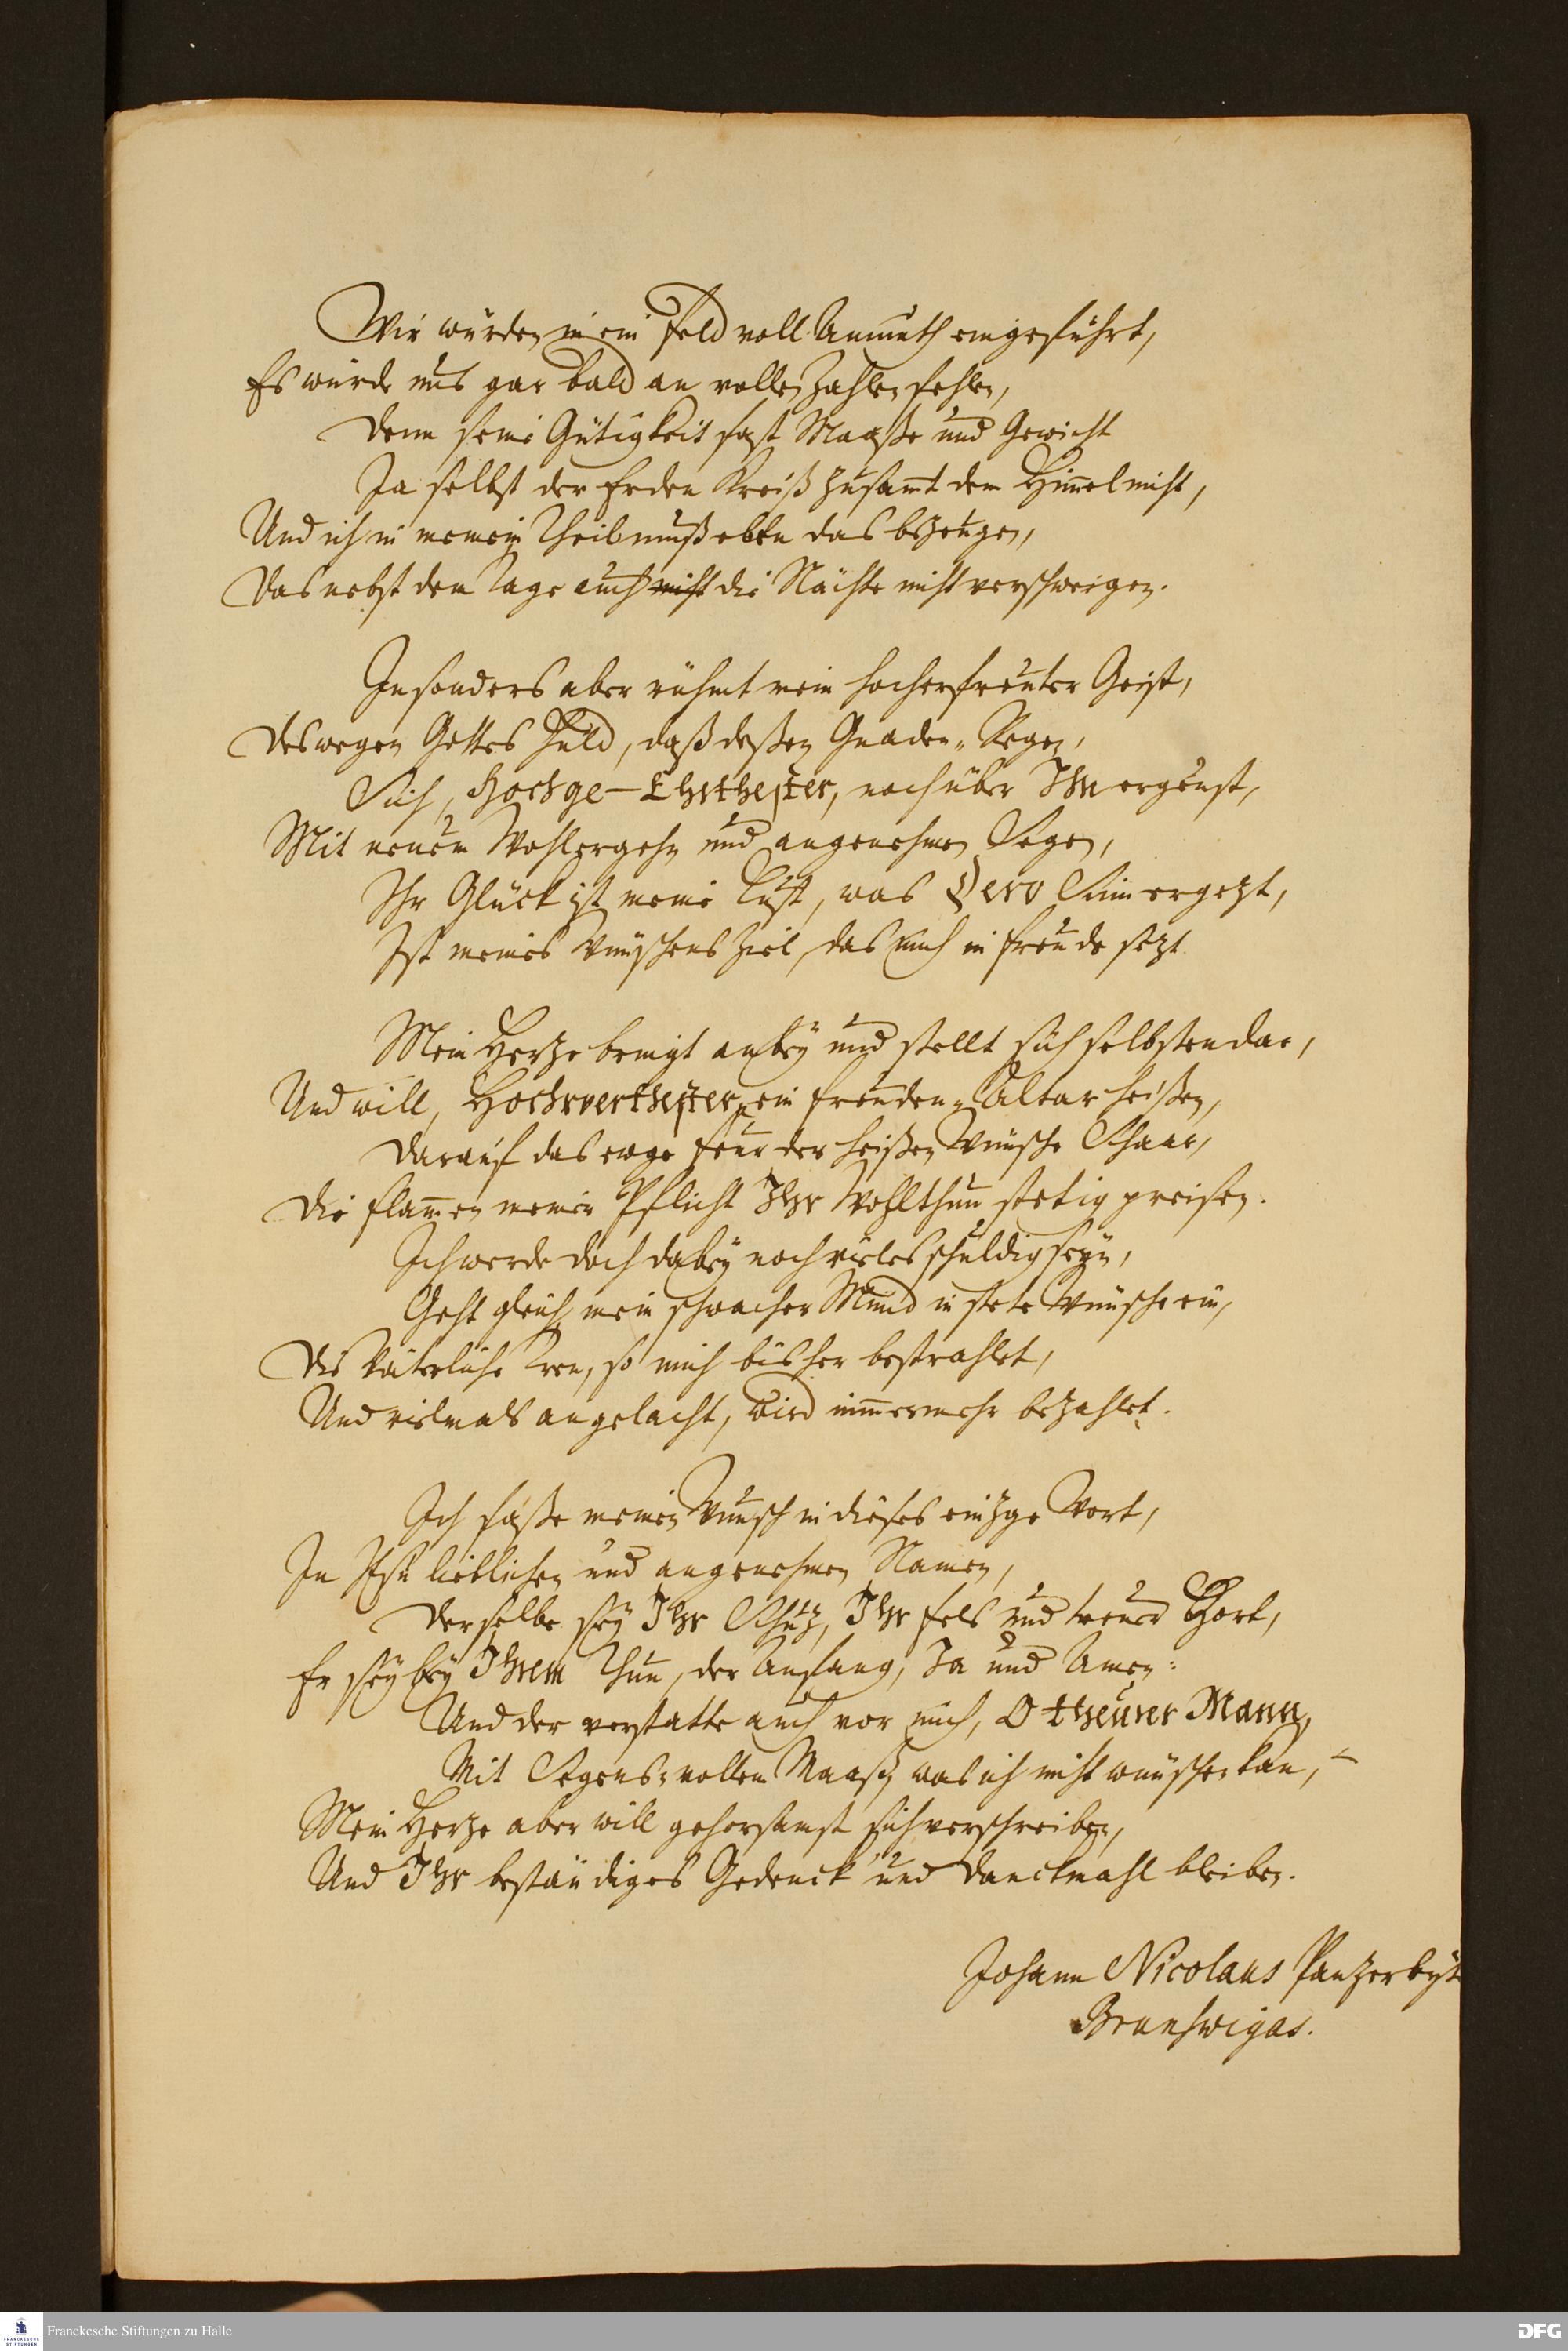 Wir würden in ein Feld voll Anmuth eingeführt,
Es würde uns gar bald an vollen Zahlen fehlen,
Denn seine Gütigkeit fast Maaße und Gewicht
Ja selbst der Erden Kreiß zusamt dem Himel nicht,
Und ich in meinem Theil muß eben das bezeugen,
Das nebst dem Tage auch nicht die Nächte nicht verschweigen.
Insonders aber rühmt mein hocherfreuter Geist,
Deswegen Gottes Huld, daß deßen Gnaden-Regen,
Sich, Hochge-Ehrthester, noch über Ihn ergeust,
Mit neuem Wohlergehn und angenehmen Segen,
Ihr Glück ist meine Lust, was Dero Sinn ergezt,
Ist meines Wünschens Ziel, das mich in Freude sezt.
Mein Herze bringt anbey und stellt sich selbsten dar,
Und will, Hochwerthester, ein Freuden-Altar heißen,
Darauf das ewge Feur der heißen Wünsche Schaar,
Die Flamen meiner Pflicht Ihr Wohlthun stetig preisen.
Ich werde doch dabey noch vieles schuldig seyn,
Geht gleich mein schwacher Mund in stete Wünsche ein,
Die Väterliche Treu, so mich bisher bestrahlet,
Und vielmals angelacht, wird nimermehr bezahlet.
Ich faße meinen Wunsch in dieses einzge Wort,
In JEsu lieblichen und angenehmen Namen,
Derselbe sey Ihr Schuz, Ihr Fels und treuer Hort,
Er sey bey Ihrem Thun, der Anfang, Ja und Amen:
Und der verstatte auch vor mich, O theurer Mann,
Mit Segens-vollem Maaß, was ich nicht wünschen kan,
Mein Herze aber will gehorsamst sich verschreiben,
Und Ihr beständiges Gedenck und Danckmahl bleiben.
Johann Nicolaus Panzerbyt
Brunswigas.
Franckesche Stiftungen zu Halle
FRANCKESCHE STIFTUNGEN
DFG